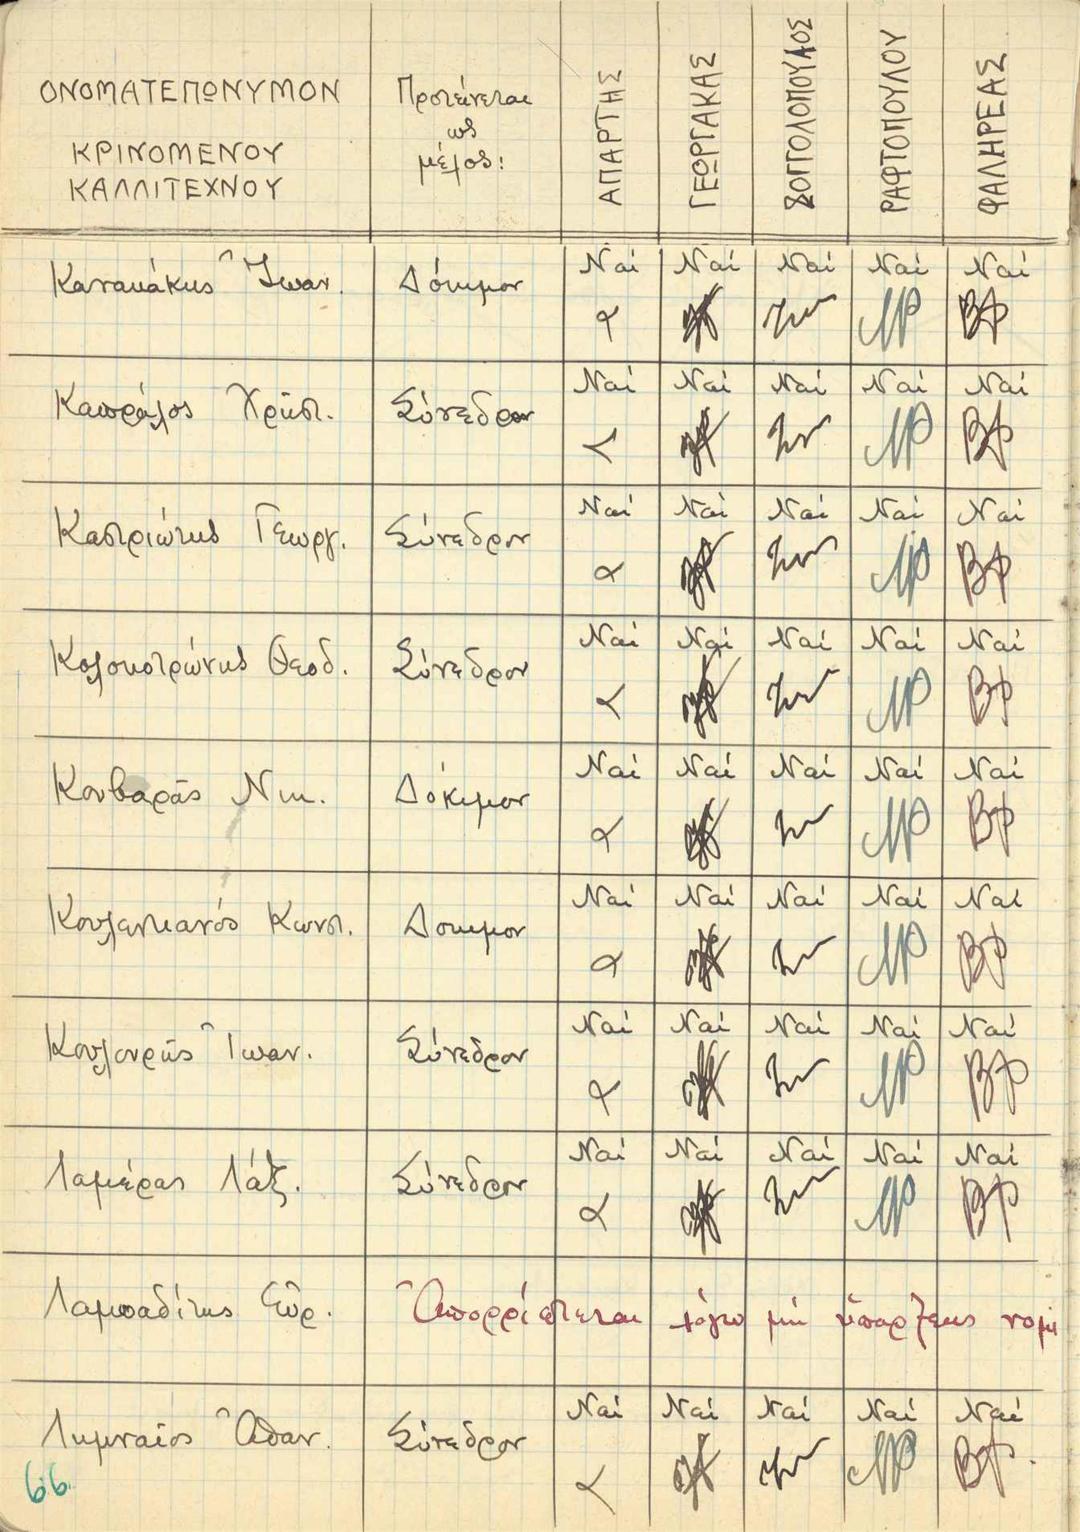 ΟΝΟΜΑΤΕΠΩΝΥΜΟΝ
ΚΡΙΝΟΜΕΝΟΥ
ΚΑΛΛΙΤΕΧΝΟΥ
Προτείνεται
ως
μέλος:
ΑΠΑΡΤΗΣ
ΓΕΩΡΓΑΚΑΣ
ΖΟΓΓΟΛΟΠΟΥΛΟΣ
ΡΑΦΤΟΠΟΥΛΟΥ
ΦΑΛΗΡΕΑΣ
Κανακάκης Ἰωαν. Δόκιμον Ναί Ναί Ναί Ναί Ναί
Καπράλος Χρῆστ. Σύνεδρον Ναί Ναί Ναί Ναί Ναί
Καστριώτης Γεωργ. Σύνεδρον Ναί Ναί Ναί Ναί Ναί
Κολοκοτρώνης Θεοδ. Σύνεδρον Ναί Ναί Ναί Ναί Ναί
Κουβαρᾶς Νικ. Δόκιμον Ναί Ναί Ναί Ναί Ναί
Κουλεντιανός Κωνστ. Δοκιμον Ναί Ναί Ναί Ναί Ναί
Κουλουρῆς Ἰωαν. Σύνεδρον Ναί Ναί Ναί Ναί Ναί
Λαμέρας Λάζ. Σύνεδρον Ναί Ναί Ναί Ναί Ναί
Λαμπαδίτης Εὐρ. Ἀπορρίπτεται λόγω μή ὑπάρξεως
Λημναῖος Ἀθαν. Σύνεδρον Ναί Ναί Ναί Ναί Ναί
66